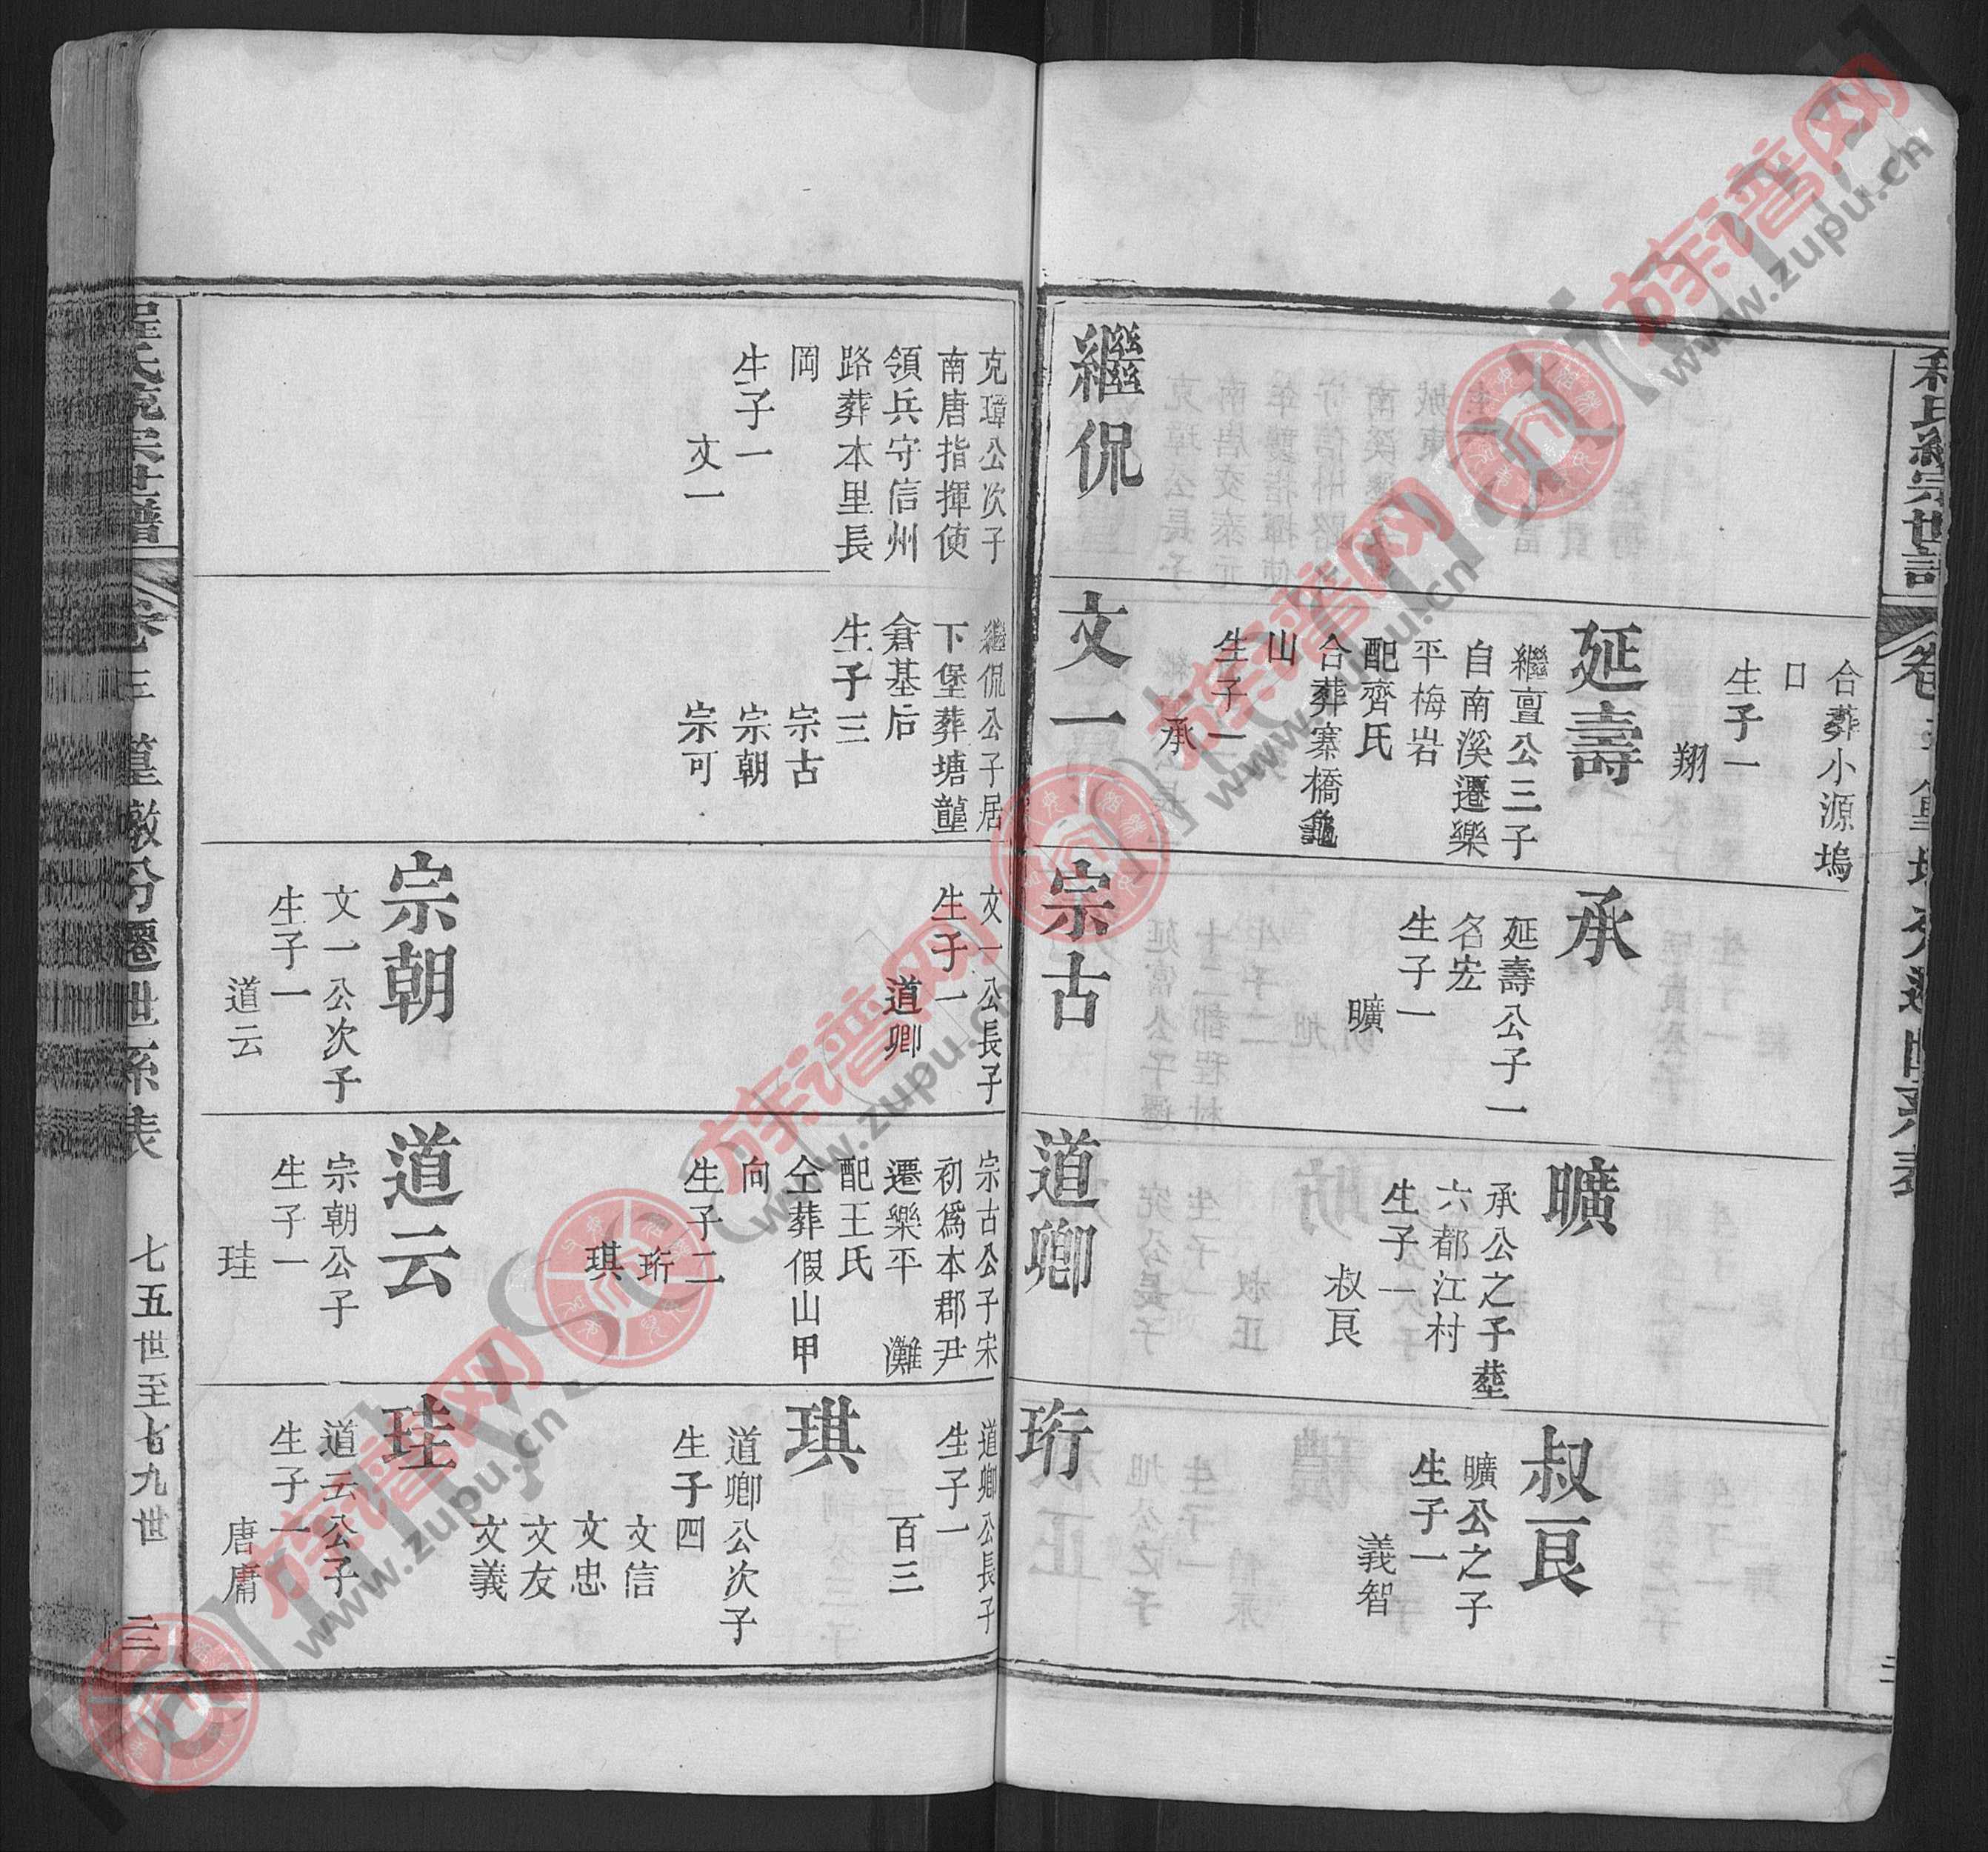 合葬小源塢
口
生子一
翔
延壽
繼亶公三子
自南溪遷樂
平梅岩
配齊氏
合葬寨橋龜
山
生子一
承
承
延壽公子一
名宏
生子一
曠
曠
承公之子塟
六都江村
生子一
叔艮
叔艮
曠公之子
生子一
義智
繼侃
克璋公次子
南唐指揮使
領兵守信州
路葬本里長
岡
生子一
文一
文一
繼侃公子居
下堡葬塘壠
倉基后
生子三
宗古
宗朝
宗可
宗古
文一公長子
生子一
道卿
宗朝
文一公次子
生子一
道云
道卿
宗古公子宋
初爲本郡尹
遷樂平 灘
配王氏
仝葬假山甲
向
生子二
珩
琪
道云
宗朝公子
生子一
珪
珩
道卿公長子
生子一
百三
琪
道卿公次子
生子四
文信
文忠
文友
文義
珪
道云公子
生子一
唐庸
程氏統宗世譜
卷三 篁墩分遷世系表
七五世至七九世 三
族谱网
www.zupu.cn
族谱网
www.zupu.cn
族谱网
www.zupu.cn
族谱网
www.zupu.cn